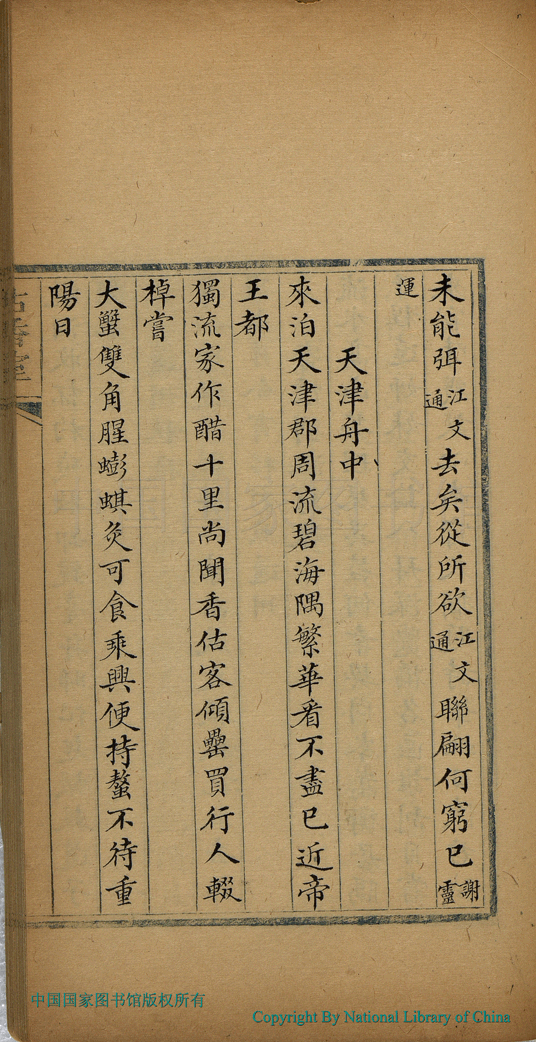 未能弭江文通去矣從所欲江文通聯翩何窮已謝靈
運
天津舟中
來泊天津郡周流碧海隅繁華看不盡已近帝
王都
獨流家作醋十里尚聞香估客傾罍買行人輟
棹嘗
大蟹雙角腥蟛蜞炙可食乘興便持螯不待重
陽日
中国国家图书馆版权所有
Copyright By National Library of China